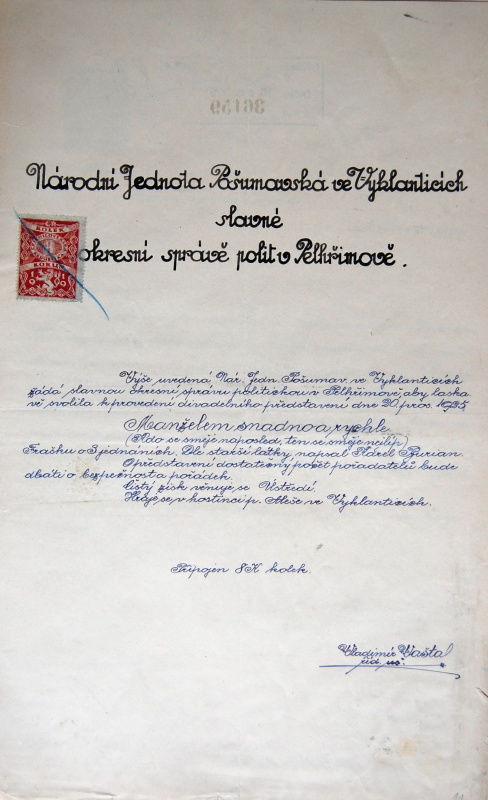 36159
Národní Jednota Pošumavská ve Vyklanticích
slavné
okresní správě polit v Pelhřimově.
KOLEK
1
1919
Výše uvedená Nár. Jedn. Pošumav. ve Vyklanticích
žádá slavnou okresní správu politickou v Pelhřimově, aby laska
vě svolila k provedení divadelního představení dne 20. pros.
Manželem snadno a rychle
(Kdo se směje naposled, ten se směje nejlíp)
Frašku o 3 jednáních. Dle starší látky, napsal Karel Burian.
O představení dostatečný počet pořadatelů bude
dbáti o bezpečnost a pořádek.
Čistý zisk věnuje se Ústředí.
Hraje se, v hostinci p. Aleše ve Vyklanticích.
Připojen 8 K kolek.
Vladimír Vaštal
říd. uč.